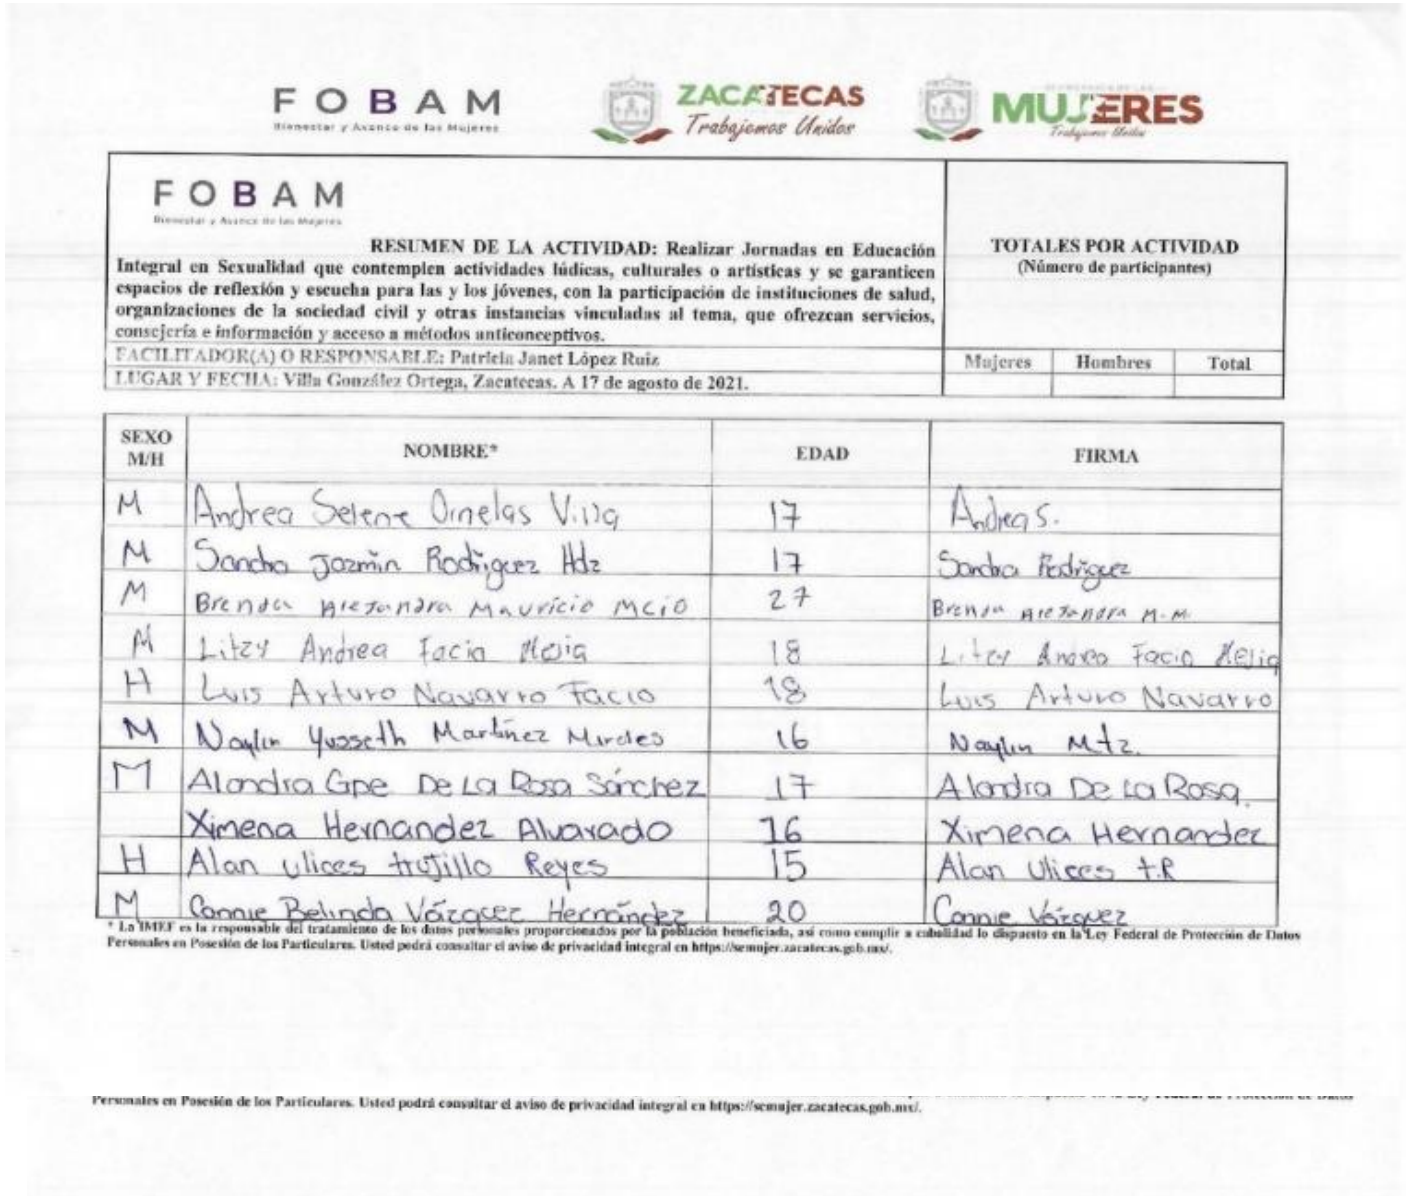 FOBAM
Bienestar y Avance de las Mujeres
ZACATECAS
Trabajemos Unidos
MUJERES
Trabajemos Unidos
FOBAM
Bienestar y Avance de las Mujeres
RESUMEN DE LA ACTIVIDAD: Realizar Jornadas en Educación
Integral en Sexualidad que contemplen actividades lúdicas, culturales o artísticas y se garanticen
espacios de reflexión y escucha para las y los jóvenes, con la participación de instituciones de salud,
organizaciones de la sociedad civil y otras instancias vinculadas al tema, que ofrezcan servicios,
consejería e información y acceso a métodos anticonceptivos.
TOTALES POR ACTIVIDAD
(Número de participantes)
FACILITADOR(A) O RESPONSABLE: Patricia Janet López Ruiz
Mujeres Hombres Total
LUGAR Y FECHA: Villa González Ortega, Zacatecas. A 17 de agosto de 2021.
SEXO M/H NOMBRE* EDAD FIRMA
M Andrea Selene Ornelas Villa 17 Andrea S.
M Sandra Jazmín Rodriguez Hdz 17 Sandra Rodriguez
M Brenda Alejandra Mauricio Mcio 27 Brenda Alejandra M.M.
M Litzy Andrea Facio Mejia 18 Litzy Andrea Facio Mejia
H Luis Arturo Navarro Facio 18 Luis Arturo Navarro
M Naylin Yusseth Martínez 16 Naylin Mtz.
M Alondra Gpe De La Rosa Sánchez 17 Alondra De La Rosa.
Ximena Hernandez Alvarado 16 Ximena Hernandez
H Alan Ulices trujillo Reyes 15 Alan Ulices t.R
M Connie Belinda Vázquez Hernández 20 Connie Vázquez
* La IMEF es la responsable del tratamiento de los datos personales proporcionados por la población beneficiada, así como cumplir a cabalidad lo dispuesto en la Ley Federal de Protección de Datos
Personales en Posesión de los Particulares. Usted podrá consultar el aviso de privacidad integral en https://semujer.zacatecas.gob.mx/.
Personales en Posesión de los Particulares. Usted podrá consultar el aviso de privacidad integral en https://semujer.zacatecas.gob.mx/.